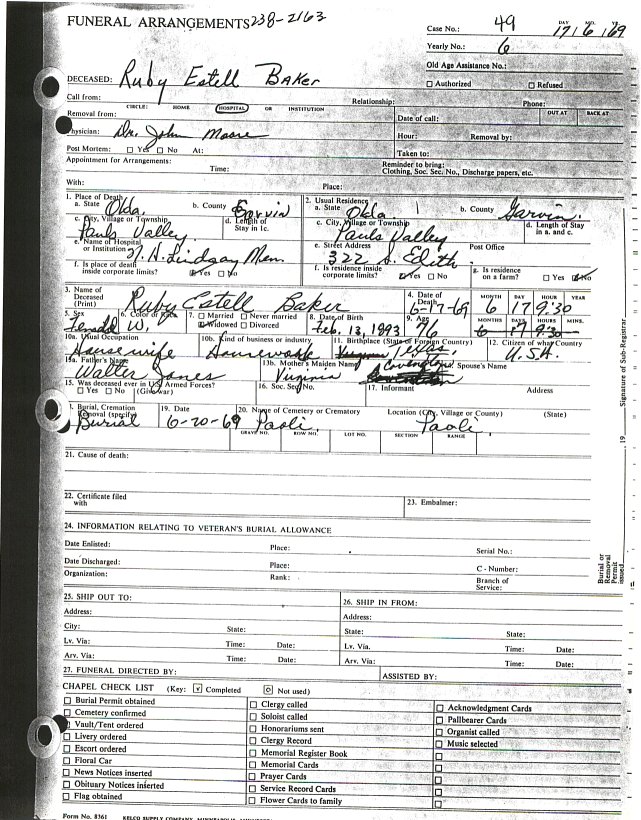 FUNERAL ARRANGEMENTS 238-2163
Case No.: 49 DAY MO. YR. 17 6 69
Yearly No.: 6
Old Age Assistance No.:
Authorized Refused
DECEASED: Ruby Estell Baker
Call from: Relationship: Phone:
CIRCLE: HOME HOSPITAL OR INSTITUTION
Removal from: Date of call: OUT AT BACK AT
Physician: Dr. John Moore Hour: Removal by:
Post Mortem: Yes No At: Taken to:
Appointment for Arrangements: Time: Reminder to bring:
Clothing, Soc. Sec. No., Discharge papers, etc.
With: Place:
1. Place of Death 2. Usual Residence
a. State Okla. b. County Garvin a. State Okla b. County Garvin.
c. City, Village or Township d. Length of Stay in 1c. c. City, Village or Township d. Length of Stay in a. and c.
Pauls Valley. Pauls Valley
e. Name of Hospital or Institution Lindsay Mem. e. Street Address 322 S. Edith. Post Office
f. Is place of death inside corporate limits? Yes No f. Is residence inside corporate limits? Yes No g. Is residence on a farm? Yes No
3. Name of Deceased (Print) Ruby Estell Baker 4. Date of Death 6-17-69 MONTH DAY HOUR YEAR 6 17 9:30
5. Sex 6. Color or Race W. 7. Married Never married Widowed Divorced 8. Date of Birth Feb. 13, 1893 9. Age 76 MONTHS DAYS HOURS MINS.
10a. Usual Occupation Housewife 10b. Kind of business or industry Housework 11. Birthplace (State or Foreign Country) Texas 12. Citizen of what Country U.S.A.
13a. Father's Name Walter Jones 13b. Mother's Maiden Name Virginia Covington Spouse's Name
15. Was deceased ever in U.S. Armed Forces? Yes No (Give war) 16. Soc. Sec. No. 17. Informant Address
Burial, Cremation Removal (specify) Burial 19. Date 6-20-69 20. Name of Cemetery or Crematory Paoli Location (City, Village or County) Paoli (State)
GRAVE NO. ROW NO. LOT NO. SECTION RANGE
21. Cause of death:
22. Certificate filed with 23. Embalmer:
24. INFORMATION RELATING TO VETERAN'S BURIAL ALLOWANCE
Date Enlisted: Place: Serial No.:
Date Discharged: Place: C - Number:
Organization: Rank: Branch of Service:
25. SHIP OUT TO: 26. SHIP IN FROM:
Address: Address:
City: State: State: State:
Lv. Via: Time: Date: Lv. Via. Time: Date:
Arv. Via: Time: Date: Arv. Via: Time: Date:
27. FUNERAL DIRECTED BY: ASSISTED BY:
CHAPEL CHECK LIST (Key: v Completed o Not used)
Burial Permit obtained Clergy called Acknowledgment Cards
Cemetery confirmed Soloist called Pallbearer Cards
Vault/Tent ordered Honorariums sent Organist called
Livery ordered Clergy Record Music selected
Escort ordered Memorial Register Book
Floral Car Memorial Cards
News Notices inserted Prayer Cards
Obituary Notices inserted Service Record Cards
Flag obtained Flower Cards to family
Form No. 8361 KELCO SUPPLY COMPANY, MINNEAPOLIS,
Signature of Sub-Registrar
19
Burial or Removal Permit issued